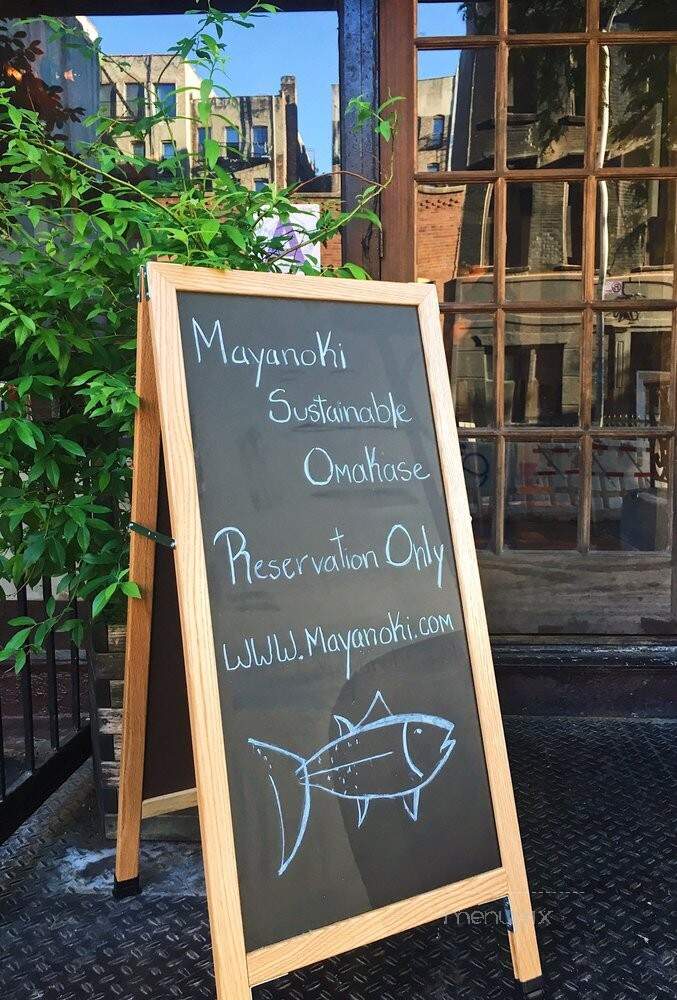 Mayanoki
Sustainable
Omakase
Reservation Only
www.Mayanoki.com
menupix